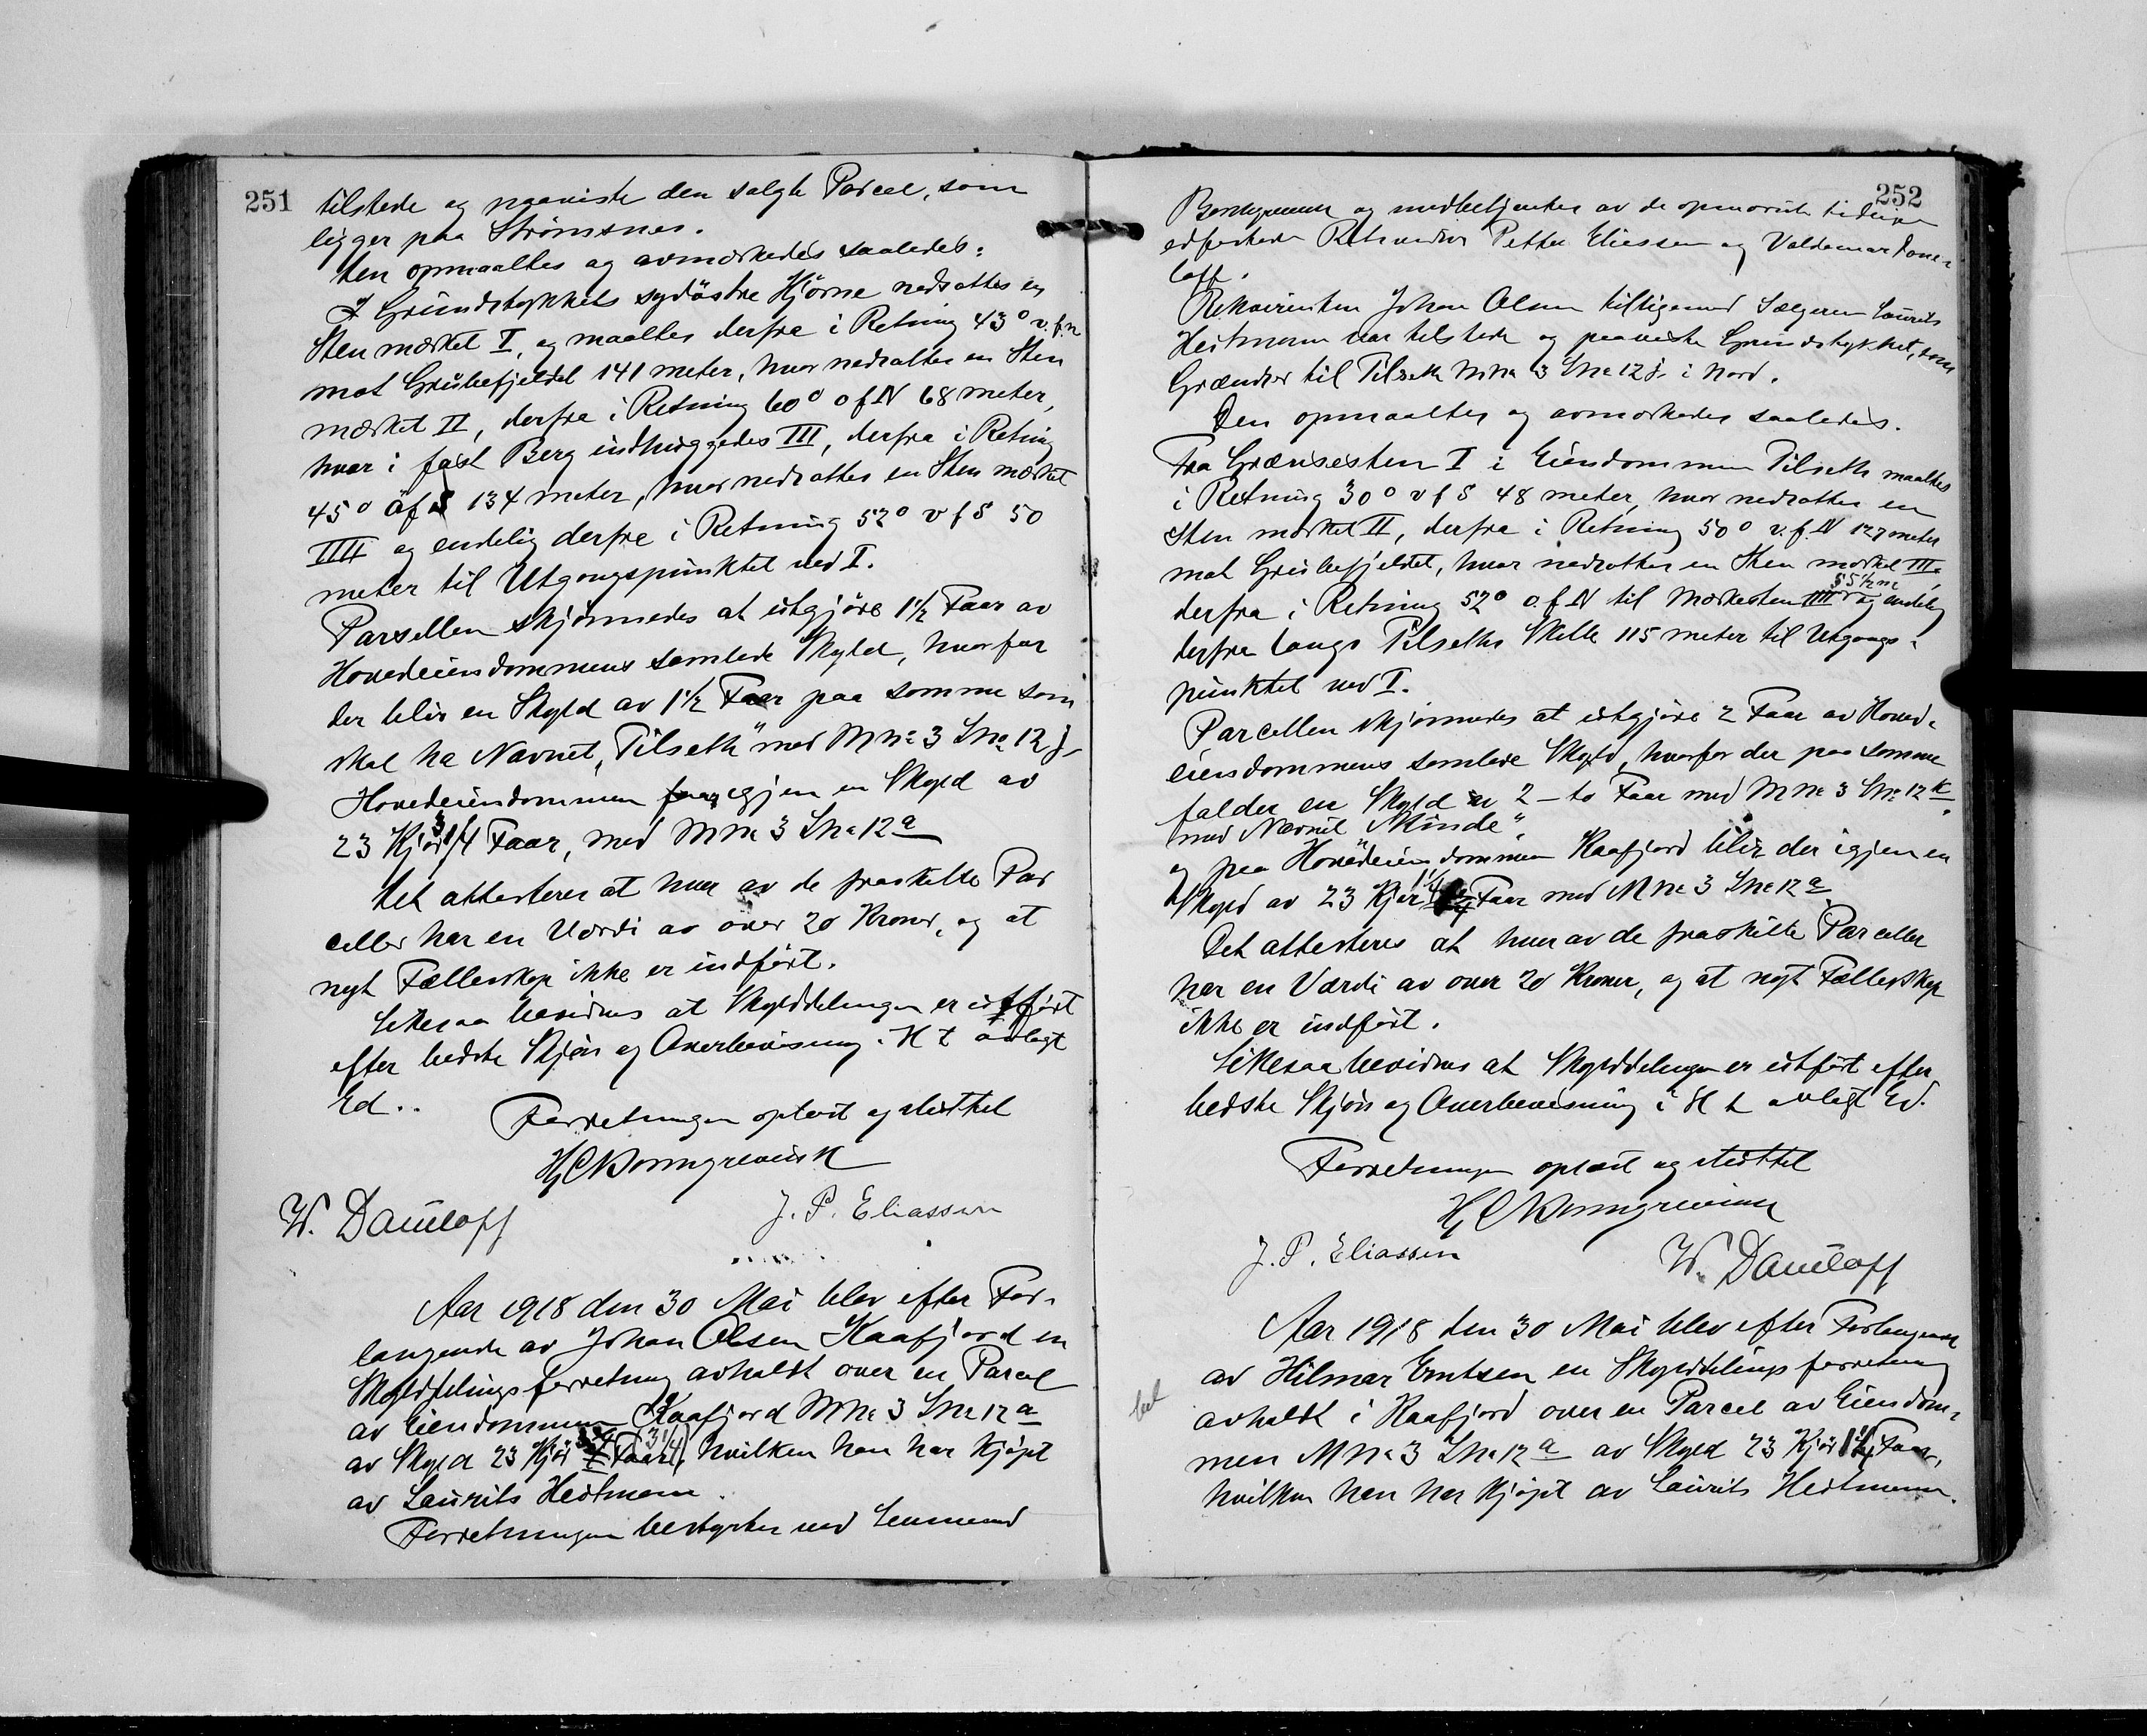 251
tilstede og paaviste den solgte Parcel, som
ligger paa Strømsnes.
Den opmaaltes og avmerkedes saaledes:
I Grundstykkets sydöstre Hjörne nedsattes en
Sten mærket I, og maaltes derfra i Retning 43° v.f.n
mot Grubefjeldet 141 meter, hvor nedsattes en Sten
mærket II, derfra i Retning 60° o f N 68 meter,
hvor i fast Berg indhuggedes III, derfra i Retning
45° öf S 134 meter, hvor nedsattes en Sten mærket
IIII og endelig derfra i Retning 52° v f S 50
meter til Utgangspunktet ved I.
Parsellen skjönnedes at utgjöre 1½ Faar av
Hovedeiendommens samlede Skyld, hvorfor
der blir en Skyld av 1½ Faar paa samme som
skal ha Navnet „Tilseth" med M No 3 L No 12 j.
Hovedeiendommen faar igjen en Skyld av
23 Kjør 3 1/4 Faar, med M No 3 L No 12 a
Det attesteres at hver av de fraskilte Par
celler har en Værdi av over 20 Kroner, og at
nyt Fælleskap ikke er indført.
Likesaa bevidnes at Skylddelingen er utført
efter bedste Skjøn og Overbevisning i H t avlagt
Ed..
Forretningen oplæst og sluttet
H C Borngrevink
W. Daniloff J. P. Eliassen
Aar 1918 den 30 Mai blev efter For-
langende av Johan Olsen Kaafjord en
Skylddelingsforretning avholdt over en Parcel
av Eiendommen Kaafjord M No 3 L No 12 a
av Skyld 23 Kjør Faar (3 1/4), hvilken han har kjöpt
av Laurits Heitmann.
Forretningen bestyrtes ved Lensmand
252
Borchgrevink og medbetjentes av de opnævnte tidligere
edfæstede Retsvidner Petter Eliessen og Valdemar Dani-
loff.
Rekvirenten Johan Olsen tilligemed Sælgeren Laurits
Heitmann var tilstede og paaviste Grundstykket, som
Grændser til Tilseth M No 3 L No 12 j. i Nord.
Den opmaaltes og avmerkedes saaledes.
Fra Grænsesten I i Eiendommen Tilseth maaltes
i Retning 30° v f S 48 meter, hvor nedsattes en
Sten mærket II, derfra i Retning 50° v. f. N 127 meter
mot Grubefjeldet, hvor nedsattes en Sten mærket III,
derfra i Retning 52° o. f. N til Mærkesten IIII 55½ m og endelig
derfra langs Tilseths Skille 115 meter til Utgangs-
punktet ved I.
Parcellen skjönnedes at utgjöre 2 Faar av Hoved-
eiendommens samlede Skyld, hvorfor der paa samme
falder en Skyld av 2 – to Faar med M No 3 L No 12 k
med Navnet „Minde".
og paa Hovedeiendommen Kaafjord blir der igjen en
Skyld av 23 Kjør 1 1/4 Faar med M No 3 L No 12 a.
Det attesteres at hver av de fraskilte Parceller
har en Værdi av over 20 Kroner, og at nyt Fælleskap
ikke er indført.
Likesaa bevidnes at Skylddelingen er utført efter
bedste Skjøn og Overbevisning i H t avlagt Ed.
Forretningen oplæst og sluttet
H C Borngrevink
J. P. Eliassen W. Daniloff
Aar 1918 den 30 Mai blev efter Forlangende
av Hilmar Erntsen en Skylddelingsforretning
avholdt i Kaafjord over en Parcel av Eiendom-
men M No 3 L No 12 a av Skyld 23 Kjør 1 1/4 Faar,
hvilken han har kjöpt av Laurits Heitmann.